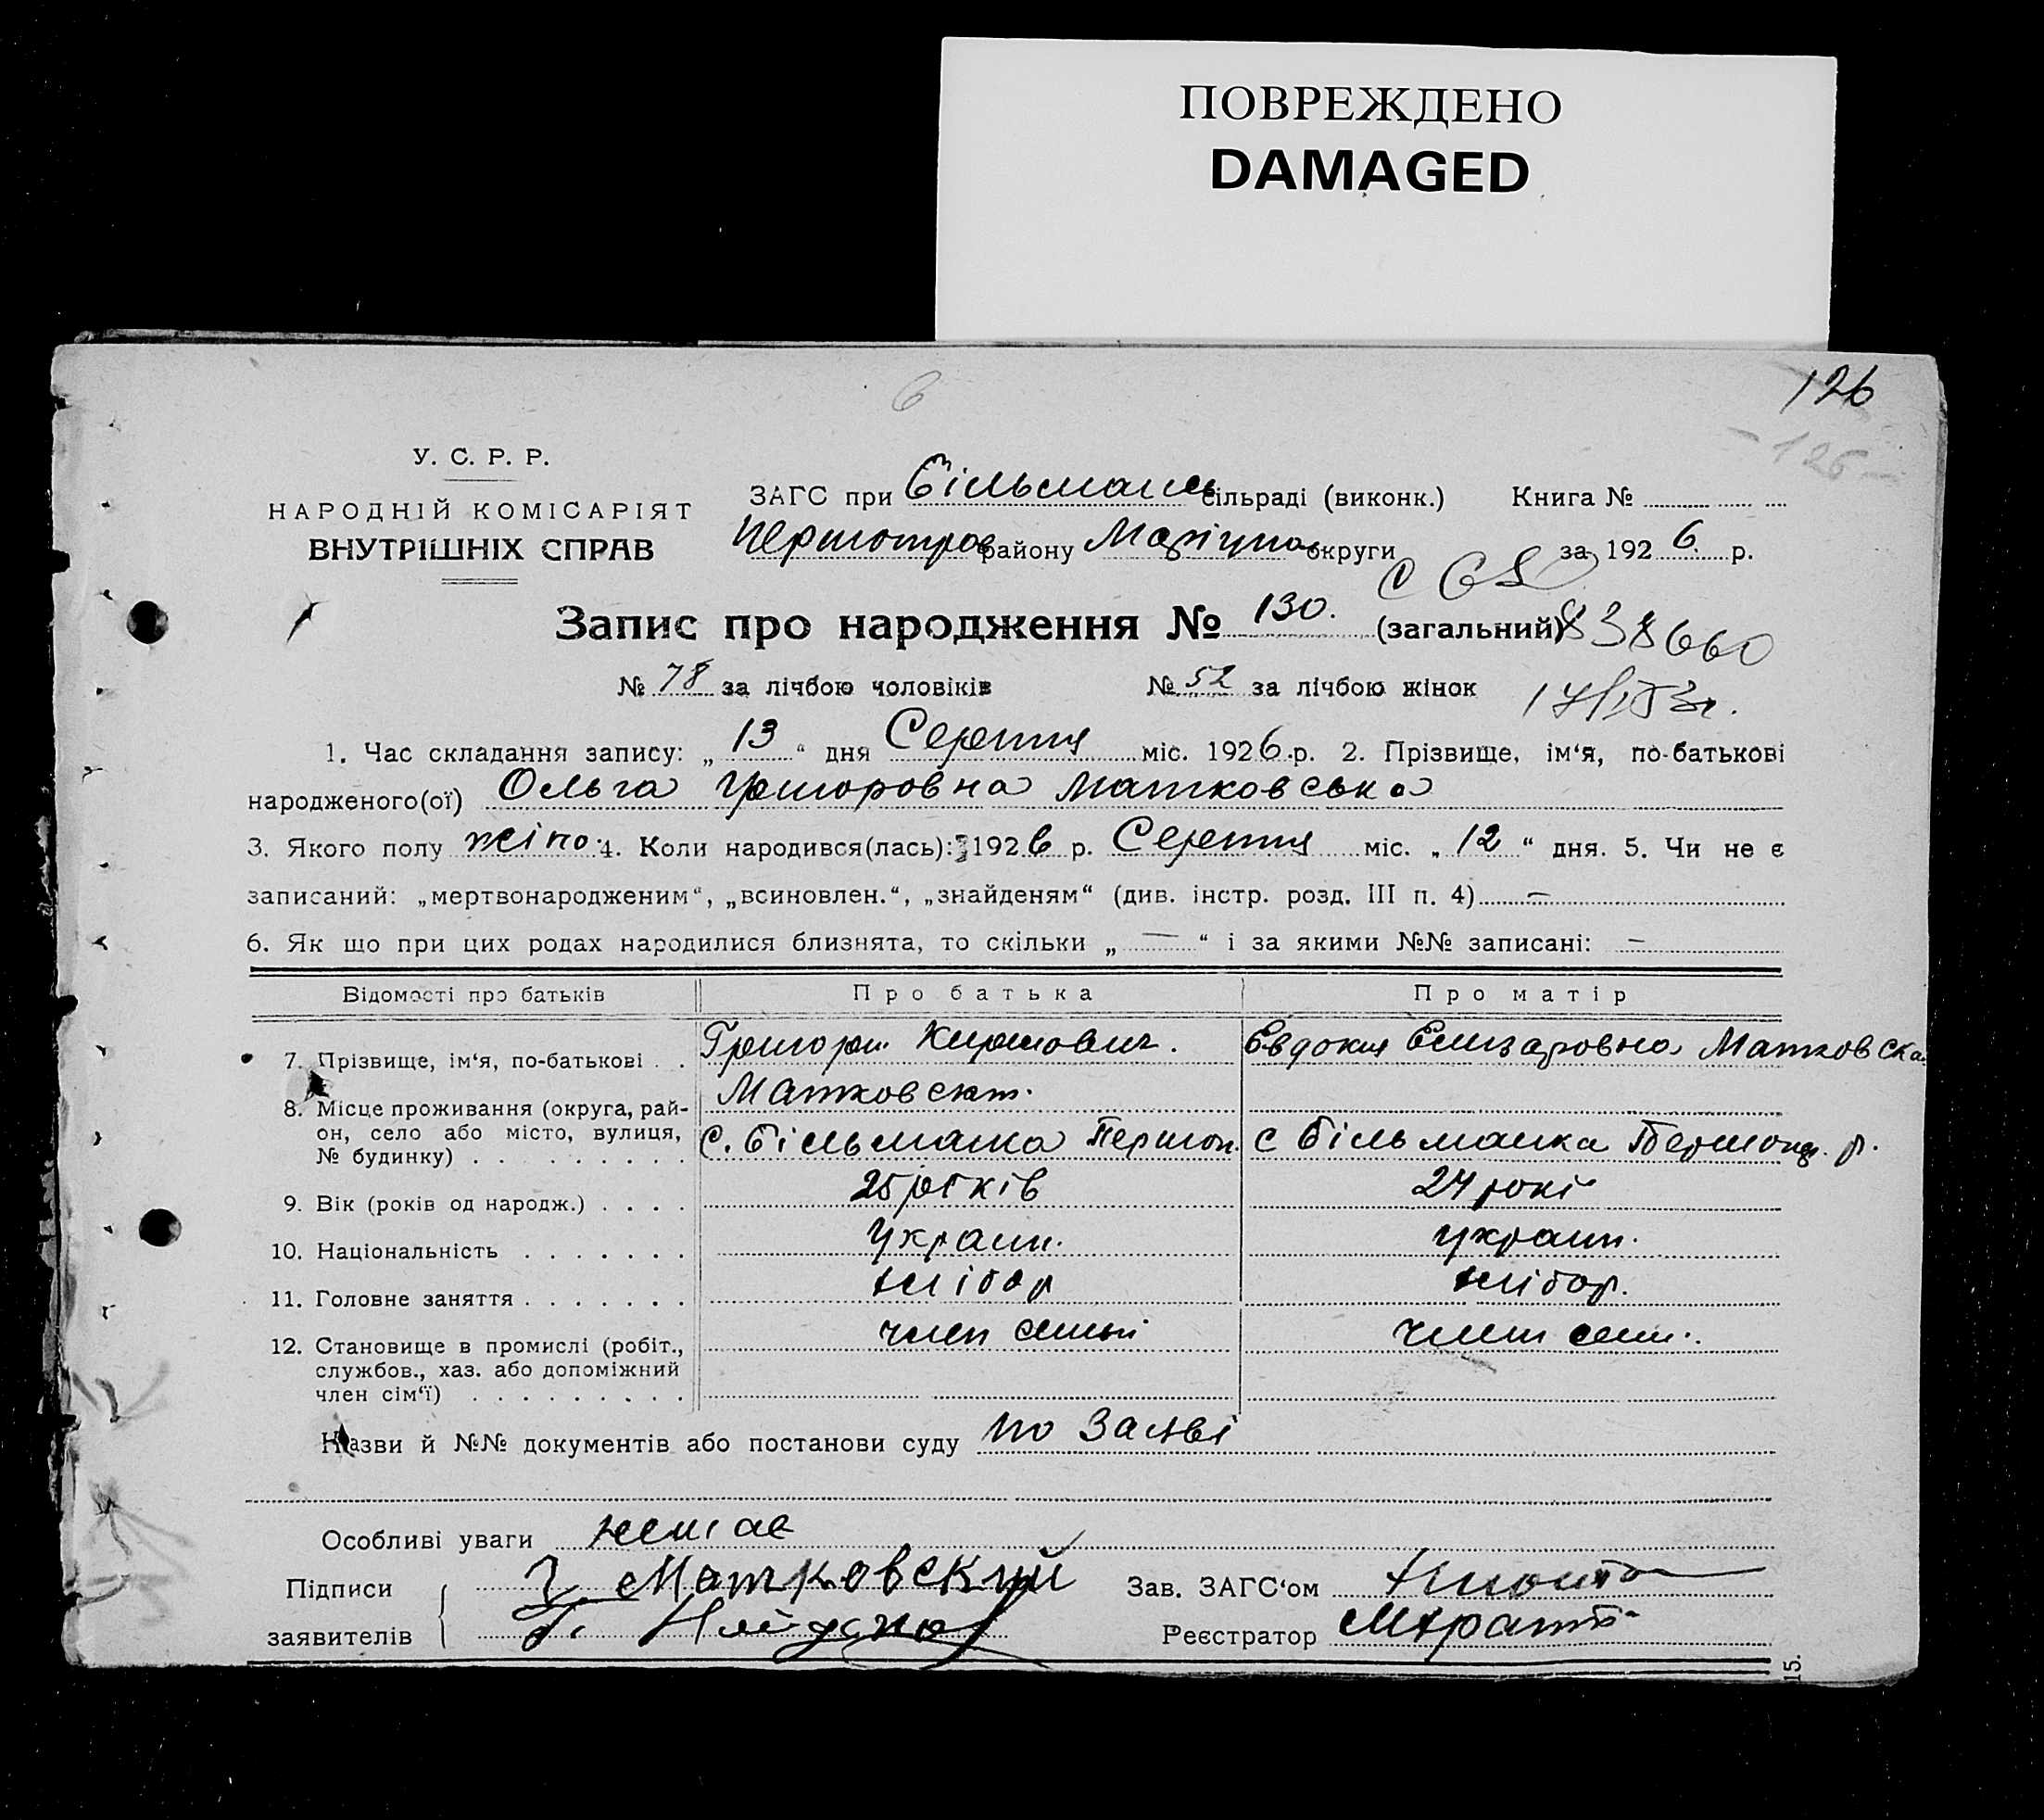 ПОВРЕЖДЕНО
DAMAGED
126
6
126
У. С. Р. Р.
НАРОДНІЙ КОМІСАРІЯТ
ВНУТРІШНІХ СПРАВ
ЗАГС при Більмансь сільраді (виконк.) Книга №
Першотров району Маріупол округи за 1926 р.
Запис про народження № 130. (загальний)
838660
№ 78 за лічбою чоловіків № 52 за лічбою жінок
1. Час складання запису: „13“ дня Серпня міс. 1926 р. 2. Прізвище, ім‘я, по-батькові
народженого(ої) Ольга Григоровна Матковська
3. Якого полу жіно. 4. Коли народився(лась): 1926 р. Серпня міс. „12“ дня. 5. Чи не є
записаний: „мертвонародженим“, „всиновлен.“, „знайденям“ (див. інстр. розд. III п. 4) —
6. Як що при цих родах народилися близнята, то скільки „—“ і за якими №№ записані: —
Відомості про батьків Про батька Про матір
7. Прізвище, ім‘я, по-батькові . . Григорій Кирилович. Евдокия Елизаровна Матковска
Матковский.
8. Місце проживання (округа, рай-
он, село або місто, вулиця, с. Більманка Першоп. с Більманка Першопр. р.
№ будинку)
9. Вік (років од народж.) . . . . 25 років 24 роки
10. Національність . . . . . . . Украин. Украин.
11. Головне заняття . . . . . . . хлібор хлібор.
12. Становище в промислі (робіт., член семьі член семи.
службов., хаз. або допоміжний
член сім‘ї) . . . . . . . . .
Назви й №№ документів або постанови суду по Заяві
Особливі уваги немає
Підписи Г. Матковский Зав. ЗАГС‘ом
заявителів Реєстратор
15.